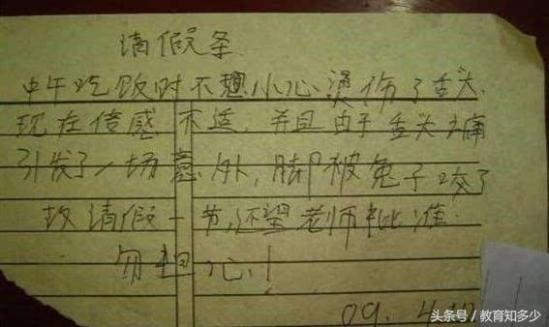 请假条
中午吃饭时不想小心烫伤了舌头.
现在倍感不适,并且由于舌头之痛
引发了一场意外,脚被兔子咬了
故请假一节,还望老师批准.
勿担心!
09.
头条号 / 教育知多少